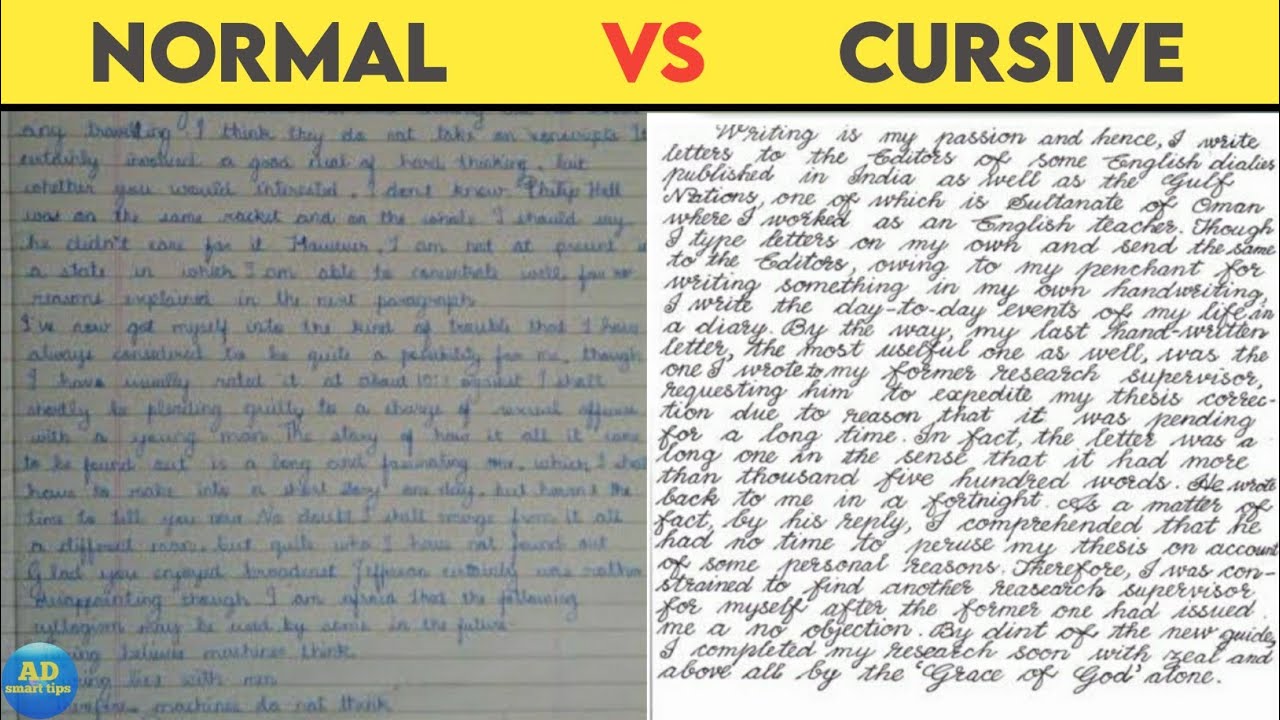 NORMAL VS CURSIVE
any travelling. I think they do not take on
certainly involved a good deal of hard thinking, but
whether you would interested, I dont know Philip Hall
was on the same racket and on the whole I should say
he didn't care for it However, I am not at present
a state in which I am able to concentrate well, for
reasons explained in the next paragraph
I've now got myself into the kind of trouble that I have
always considered to be quite a posibility for me, though
I have usually rated it at about 10:1 against I shall
shortly be pleading guilty to a charge of sexual offence
with a young man The story of how it all it came
to be found out is a long and fascinating one, which I shall
have to make into a short story one day, but haven't the
time to tell you now No doubt I shall emerge from it all
a different man, but quite who I have not found out
Glad you enjoyed broadcast Jefferson certainly was rather
disappointing though I am afraid that the following
syllogism may be used by some in the future
believes machines think
lies with men
machines do not think
Writing is my passion and hence, I write
letters to the Editors of some English dialies
published in India as well as the Gulf
Nations, one of which is Sultanate of Oman
where I worked as an English teacher. Though
I type letters on my own and send the same
to the Editors, owing to my penchant for
writing something in my own handwriting,
I write the day-to-day events of my life in
a diary. By the way, my last hand-written
letter, the most useful one as well, was the
one I wrote to my former research supervisor,
requesting him to expedite my thesis correc-
tion due to reason that it was pending
for a long time. In fact, the letter was a
long one in the sense that it had more
than thousand five hundred words. He wrote
back to me in a fortnight. As a matter of
fact, by his reply, I comprehended that he
had no time to peruse my thesis on account
of some personal reasons. Therefore, I was con-
strained to find another reasearch supervisor
for myself after the former one had issued
me a no objection. By dint of the new guide,
I completed my research soon with zeal and
above all by the 'Grace of God' alone.
AD
smart tips